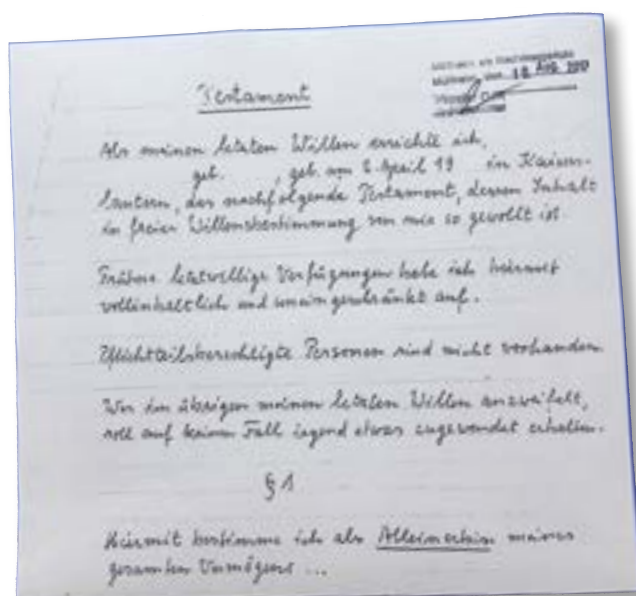 Testament
18. Aug. 2017
Als meinen letzten Willen errichte ich,
geb. , geb. am 2. April 19 in Kaisers-
lautern, das nachfolgende Testament, dessen Inhalt
in freier Willensbestimmung von mir so gewollt ist.
Frühere letztwillige Verfügungen hebe ich hiermit
vollinhaltlich und uneingeschränkt auf.
Pflichtteilsberechtigte Personen sind nicht vorhanden.
Wer im übrigen meinen letzten Willen anzweifelt,
soll auf keinen Fall irgend etwas zugewendet erhalten.
§ 1
Hiermit bestimme ich als Alleinerbin meines
gesamten Vermögens ...